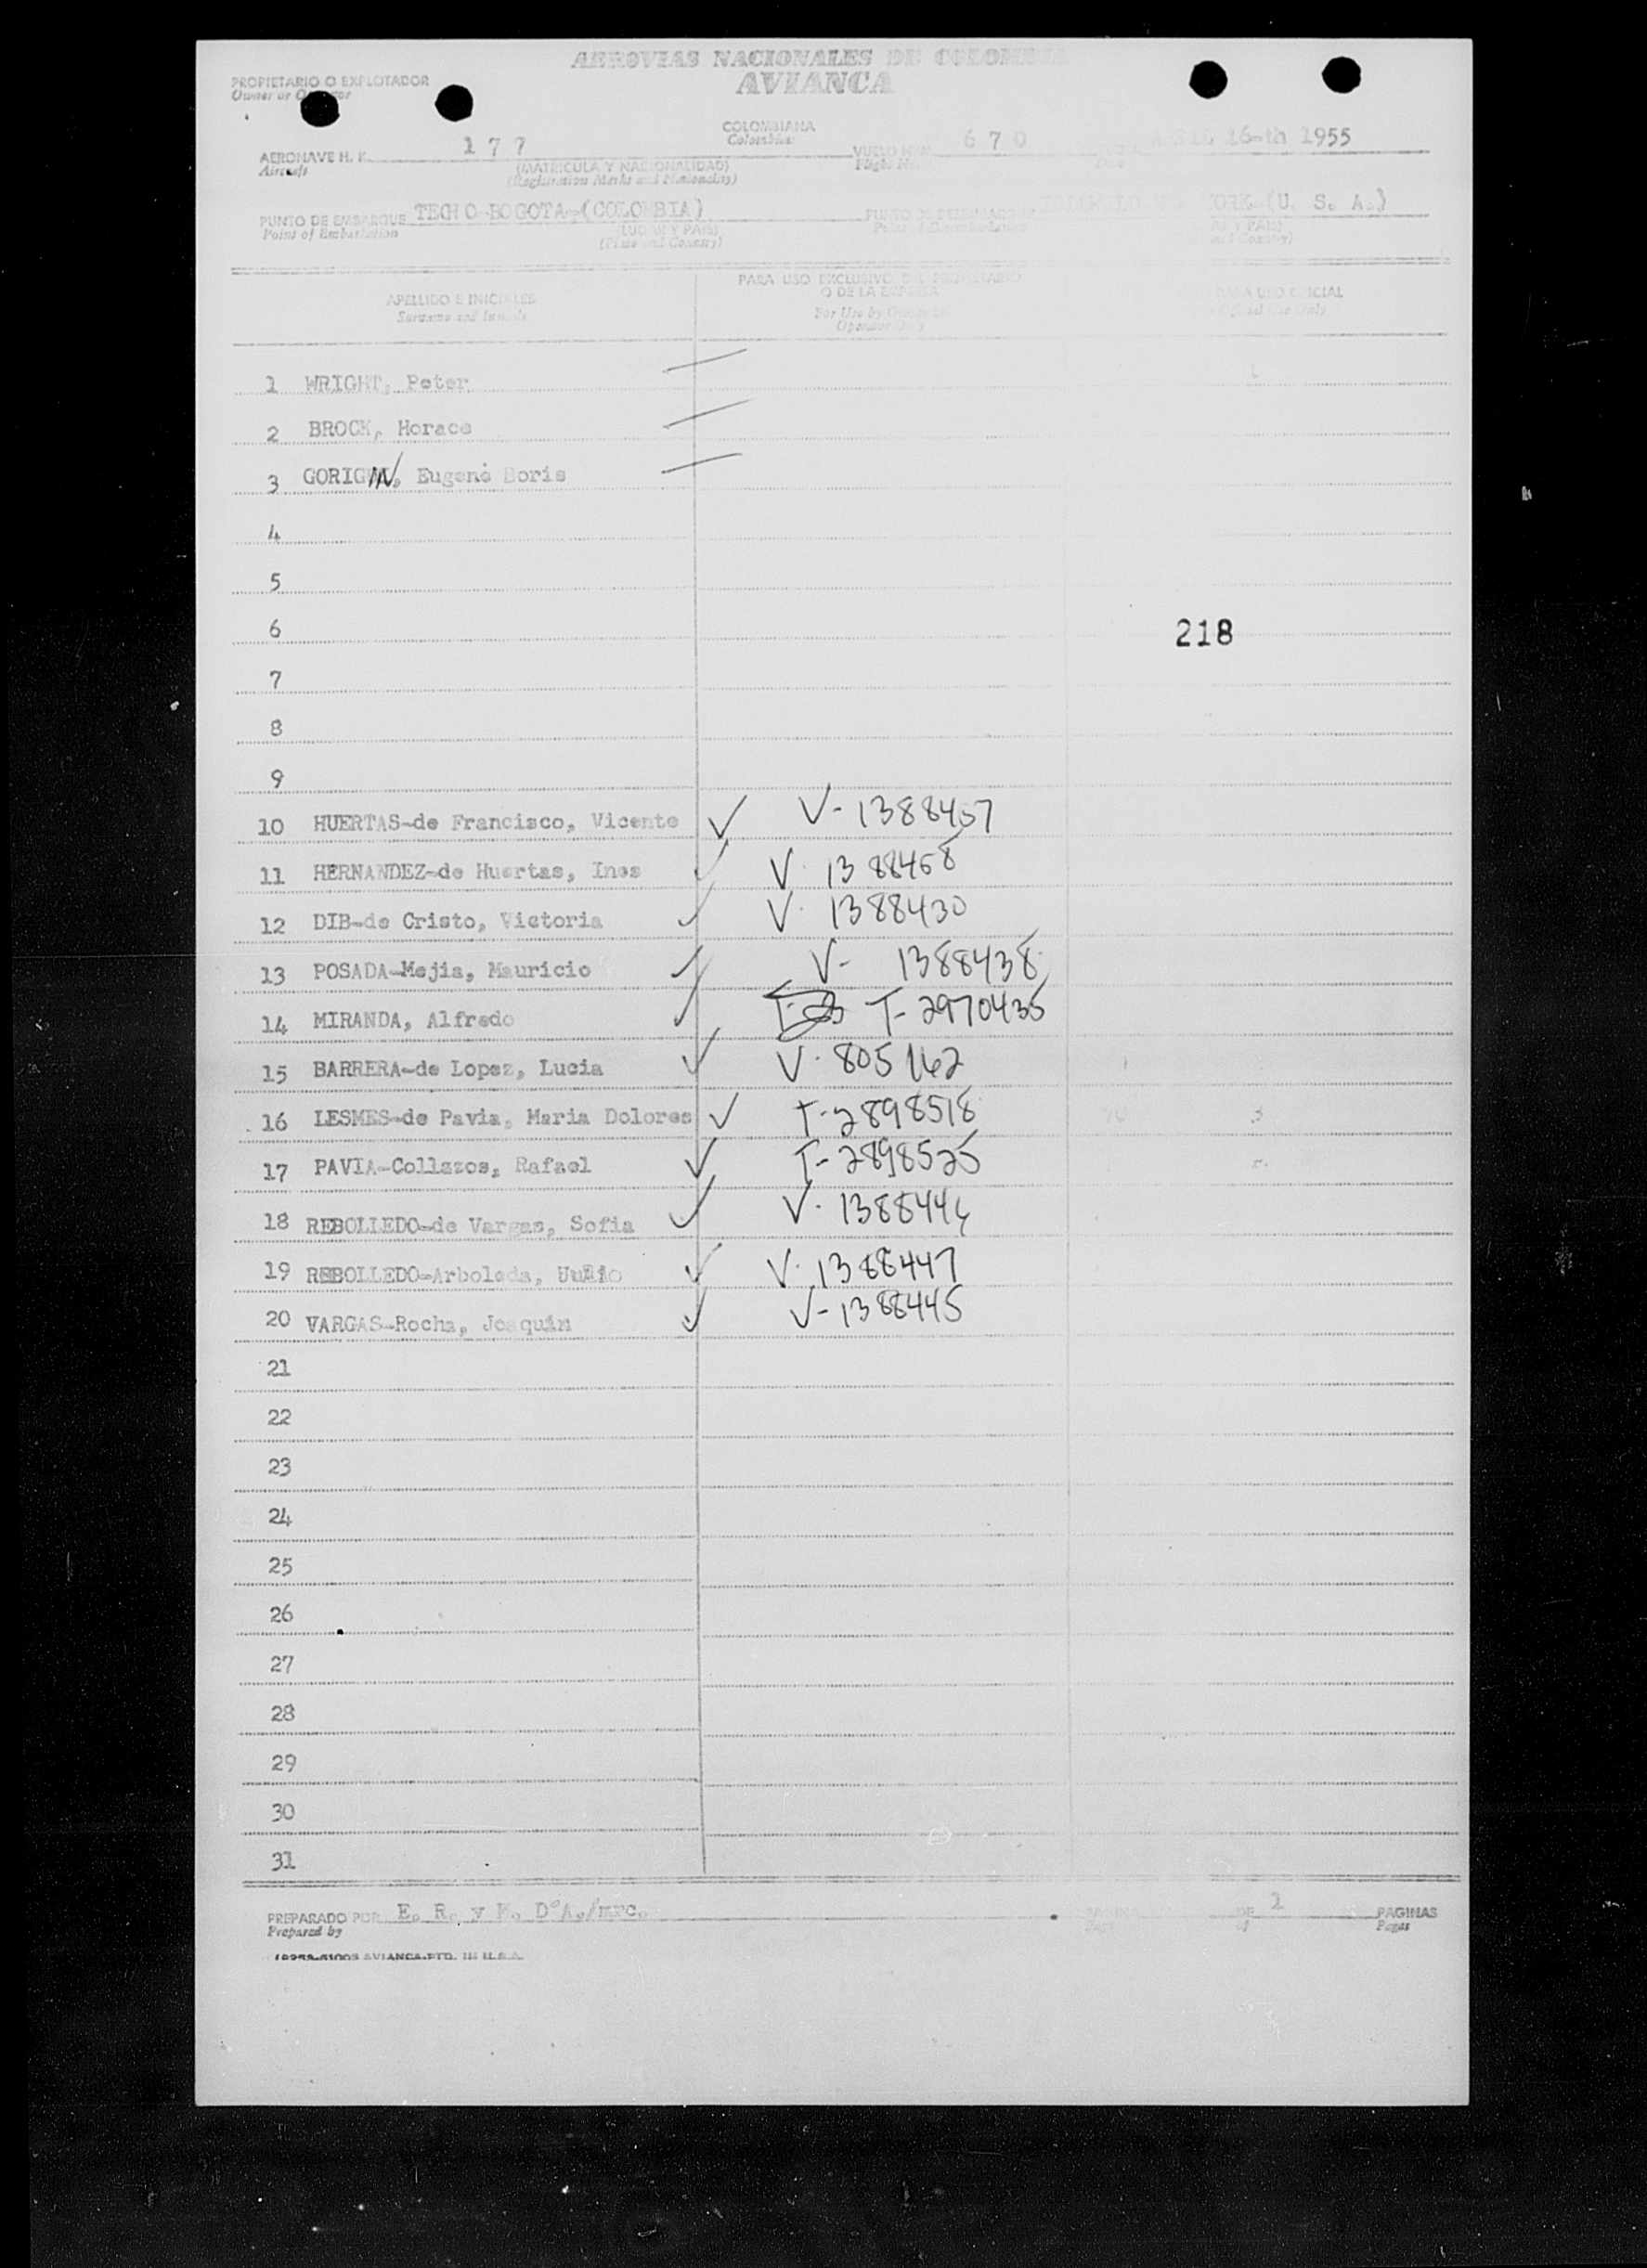 AEROVIAS NACIONALES DE COLOMBIA
AVIANCA
PROPIETARIO O EXPLOTADOR
Owner or Operator
COLOMBIANA
Colombian
AERONAVE H. K. 177
Aircraft
(MATRICULA Y NACIONALIDAD)
(Registration Marks and Nationality)
VUELO 670
Flight
16-th 1955
PUNTO DE EMBARQUE TECHO-BOGOTA-(COLOMBIA)
Point of Embarkation
(LUGAR Y PAIS)
(Place and Country)
YORK-(U. S. A.)
APELLIDO E INICIALES
Surname and Initials
PARA USO EXCLUSIVO DEL PROPIETARIO
O DE LA EMPRESA
For Use by Owner or
Operator Only
PARA USO OFICIAL
Official use Only
1 WRIGHT, Peter
2 BROCK, Horace
3 GORIGIN, Eugene Boris
4
5
6 218
7
8
9
10 HUERTAS-de Francisco, Vicente ✓ V-1388457
11 HERNANDEZ-de Huertas, Ines ✓ V-1388458
12 DIB-de Cristo, Victoria ✓ V-1388430
13 POSADA-Mejia, Mauricio ✓ V-1388438
14 MIRANDA, Alfredo ✓ T-2970435
15 BARRERA-de Lopez, Lucia ✓ V-805162
16 LESMES-de Pavia, Maria Dolores ✓ T-2898518
17 PAVIA-Collazos, Rafael ✓ T-2898525
18 REBOLLEDO-de Vargas, Sofia ✓ V-1388444
19 REBOLLEDO-Arboleda, ✓ V-1388447
20 VARGAS-Rocha, Joaquin ✓ V-1388445
21
22
23
24
25
26
27
28
29
30
31
PREPARADO POR E. R. y
Prepared by
DE 1 PAGINAS
of Pages
AVIANCA-PTD. IN U.S.A.